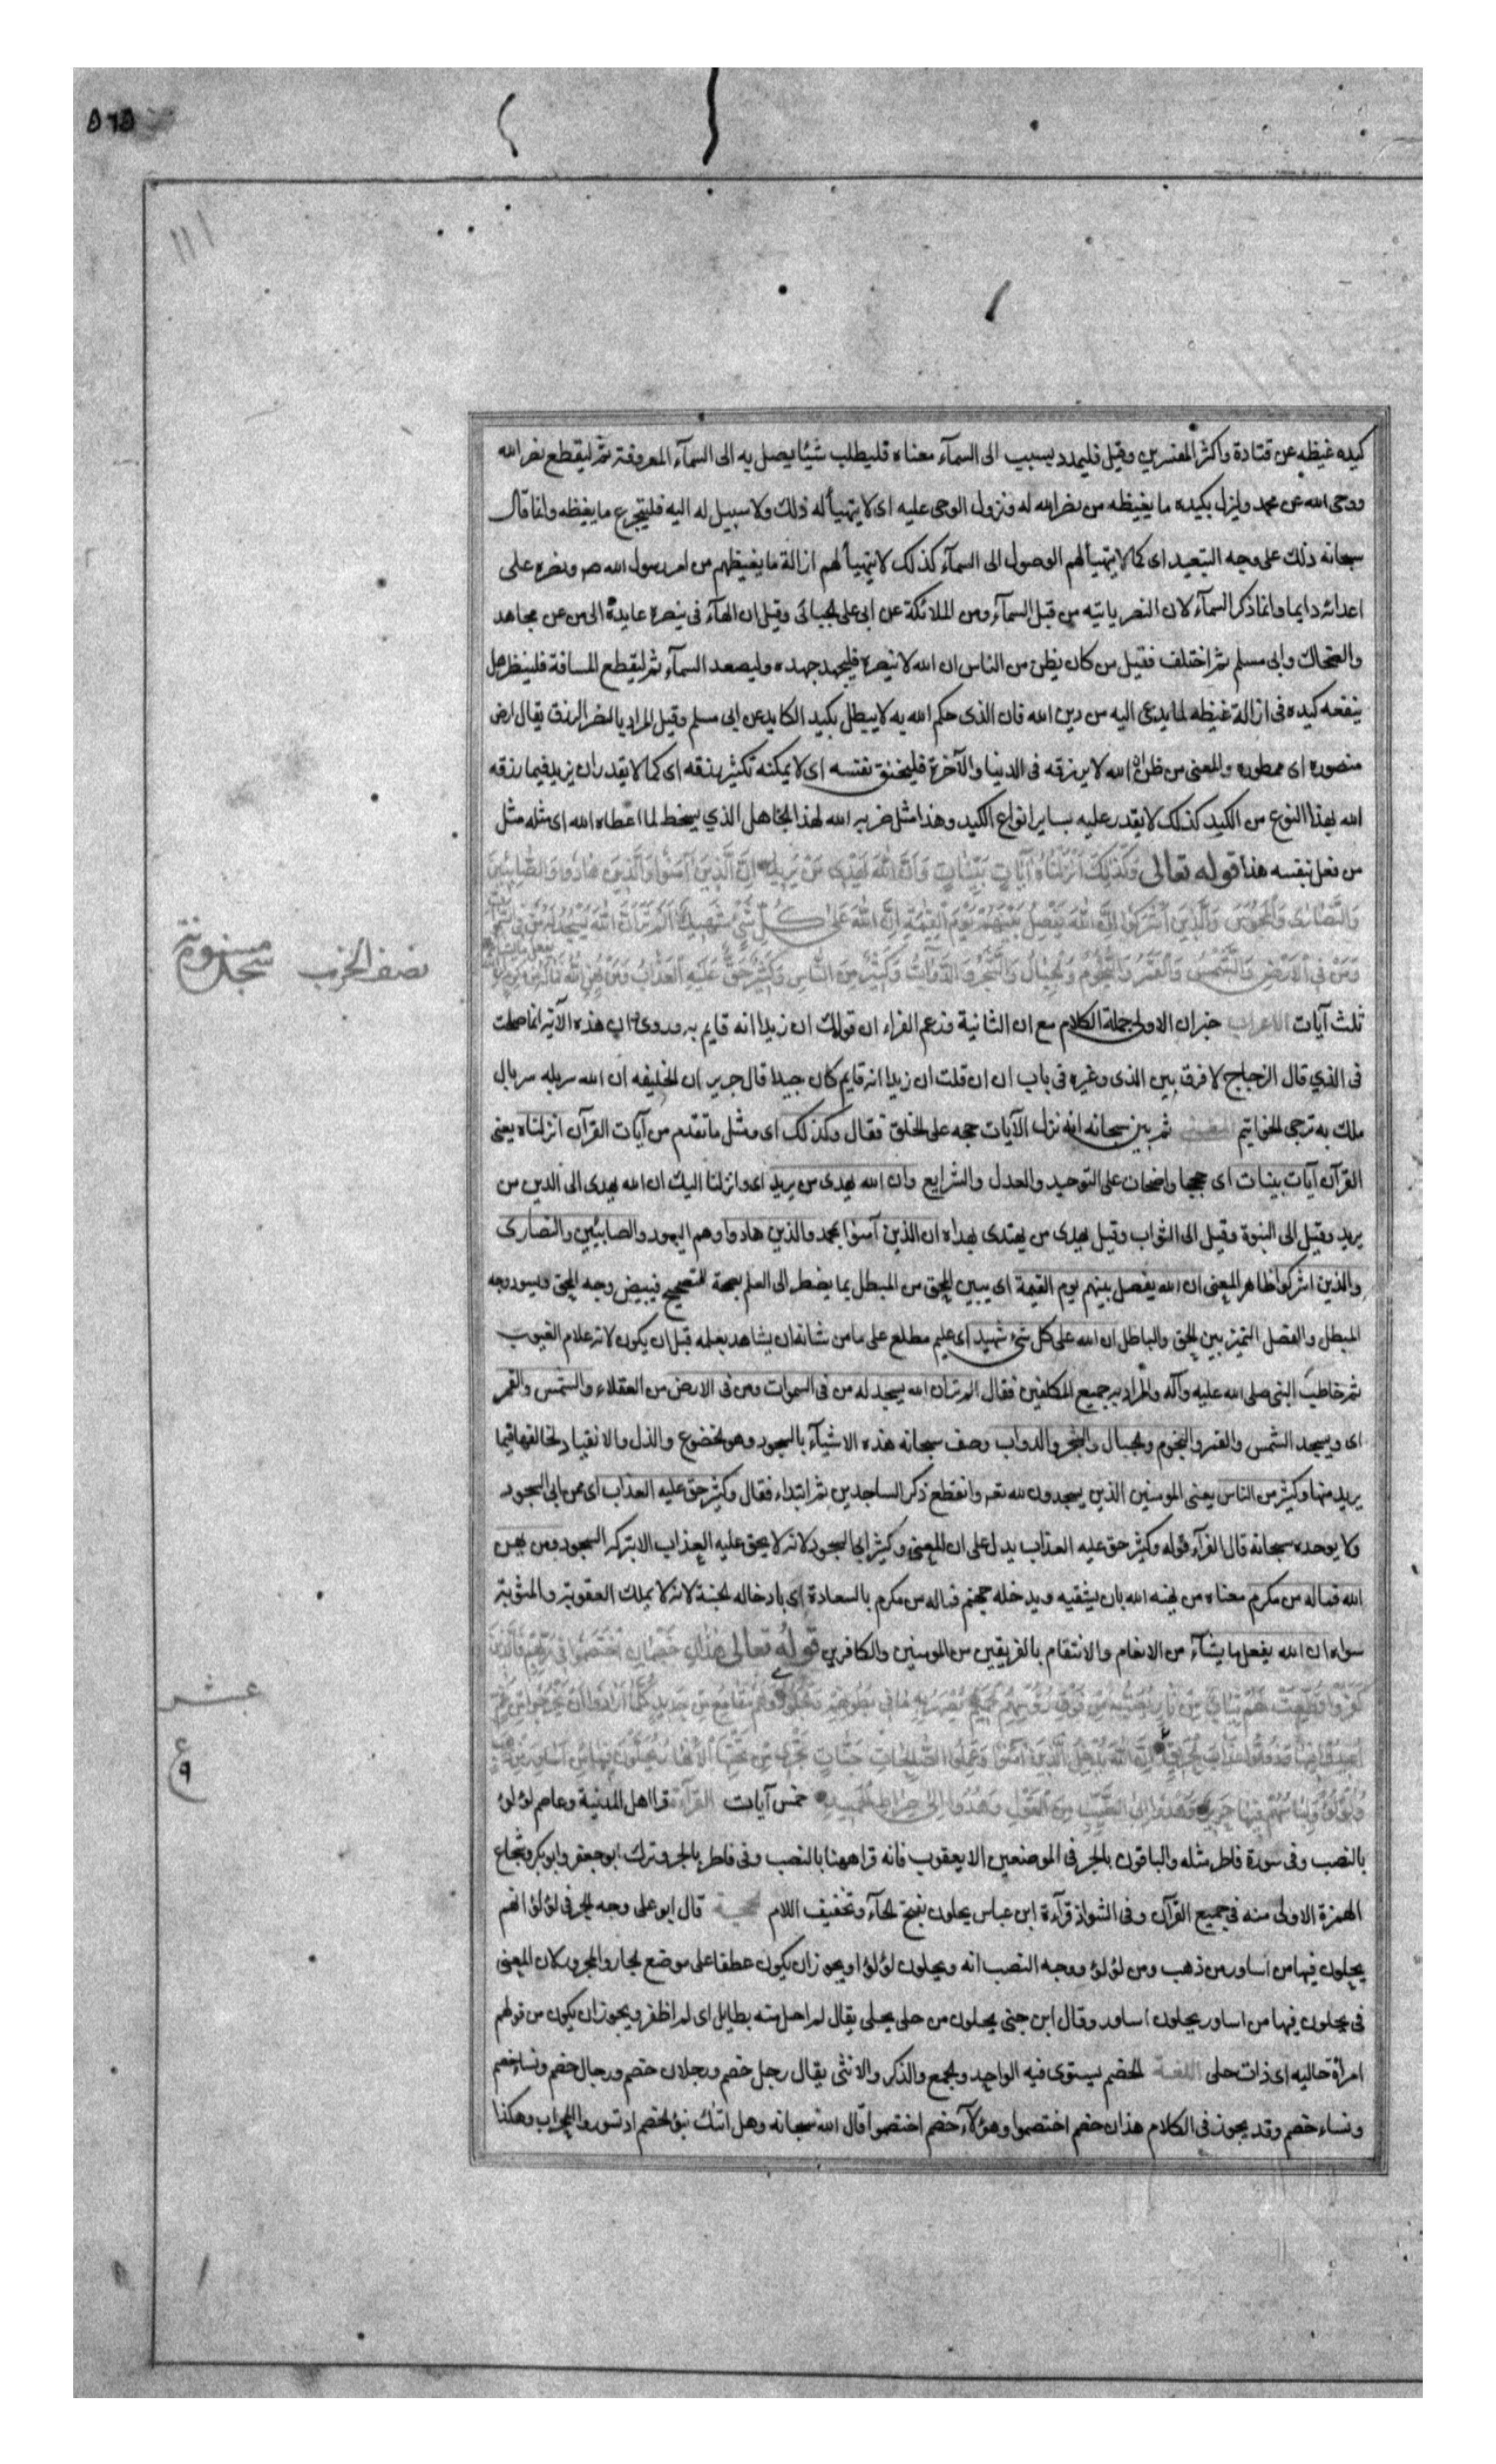 ٥٦٥
كيده غيظه عن قتادة واكثر المفسرين وقيل فليمدد بسبب الى السمآء معناه فليطلب شيئا يصل به الى السمآء المعروفة ثم ليقطع نصر الله
ووحى الله عن محمد وليزل بكيده ما يغيظه من نصر الله له ونزول الوحى عليه اى لا يتهيأ له ذلك ولا سبيل له اليه فليتجرع ما يغيظه وانما قال
سبحانه ذلك على وجه التبعيد اى كما لا يتهيأ لهم الوصول الى السمآء كذلك لا يتهيأ لهم ازالة ما يغيظهم من امر رسول الله ص ونصره على
اعدائه دايما وانما ذكر السمآء لان النصر ياتيه من قبل السمآء ومن الملائكة عن ابى على الجبائى وقيل ان الهآء فى ينصره عايدة الى من عن مجاهد
والضحاك وابى مسلم ثم اختلف فقيل من كان يظن من الناس ان الله لا ينصره فليجهد جهده وليصعد السمآء ثم ليقطع المسافة فلينظر هل
ينفعه كيده فى ازالة غيظه لما يدعى اليه من دين الله فان الذى حكم الله به لا يبطل بكيد الكايد عن ابى مسلم وقيل المراد بالنصر الرزق يقال ارض
منصوره اى ممطوره والمعنى من ظن ان الله لا يرزقه فى الدنيا والآخرة فليختنق نفسه اى لا يمكنه تكثير رزقه اى كما لا يقدر ان يزيد فيما رزقه
الله بهذا النوع من الكيد كذلك لا يقدر عليه بساير انواع الكيد وهذا مثل ضربه الله لهذا الجاهل الذي يسخط لما اعطاه الله اى مثله مثل
من فعل بنفسه هذا قوله تعالى وَكَذلِكَ اَنْزَلْنَاهُ آيَاتٍ بَيِّنَاتٍ وَاَنَّ اللهَ يَهْدِى مَنْ يُرِيدُ اِنَّ الَّذِينَ آمَنُوا وَالَّذِينَ هَادُوا وَالصَّابِئِينَ
وَالنَّصَارَى وَالْمَجُوسَ وَالَّذِينَ اَشْرَكُوا اِنَّ اللهَ يَفْصِلُ بَيْنَهُمْ يَوْمَ الْقِيمَةِ اِنَّ اللهَ عَلَى كُلِّ شَىْءٍ شَهِيدٌ اَلَمْ تَرَ اَنَّ اللهَ يَسْجُدُ لَهُ مَنْ فِى
وَمَنْ فِى الْاَرْضِ وَالشَّمْسُ وَالْقَمَرُ وَالنُّجُومُ وَالْجِبَالُ وَالشَّجَرُ وَالدَّوَابُّ وَكَثِيرٌ مِنَ النَّاسِ وَكَثِيرٌ حَقَّ عَلَيْهِ الْعَذَابُ وَمَنْ يُهِنِ اللهُ فَمَا لَهُ مِنْ
نصف الحزب سجده مسنونة
ثلث آيات الاعراب خبر ان الاولى جملة الكلام مع ان الثانية وزعم الفراء ان قولك ان زيدا انه قايم ردى وان هذه الآية انما صلحت
فى الذي قال الزجاج لا فرق بين الذى وغيره فى باب ان ان قلت ان زيدا انه قايم كان جيدا قال جرير ان الخليفه ان الله سربله سربال
ملك به ترجى الخواتيم المعنى ثم بين سبحانه انه نزل الآيات حجه على الخلق فقال وكذلك اى ومثل ما تقدم من آيات القرآن انزلناه يعنى
القرآن آيات بينات اى حججا واضحات على التوحيد والعدل والشرايع وان الله يهدى من يريد اى وانزلنا اليك ان الله يهدى الى الدين من
يريد وقيل الى النبوة وقيل الى الثواب وقيل يهدى من يهتدى بهداه ان الذين آمنوا بمحمد والذين هادوا وهم اليهود والصابئين والنصارى
والذين اشركوا ظاهر المعنى ان الله يفصل بينهم يوم القيمة اى يبين المحق من المبطل بما يضطر الى العلم بصحة الصحيح فيبيض وجه المحق ويسود وجه
المبطل والفصل التميز بين الحق والباطل ان الله على كل شىء شهيد اى عليم مطلع على ما من شانه ان يشاهد بعلمه قبل ان يكون لانه علام الغيوب
ثم خاطب النبى صلى الله عليه وآله والمراد به جميع المكلفين فقال الم تر ان الله يسجد له من فى السموات ومن فى الارض من العقلاء والشمس والقمر
اى ويسجد الشمس والقمر والنجوم والجبال والشجر والدواب وصف سبحانه هذه الاشيآء بالسجود وهو الخضوع والذل والانقياد لخالقها فيما
يريد منها وكثير من الناس يعنى المومنين الذين يسجدون لله تعه وانقطع ذكر الساجدين ثم ابتداء فقال وكثير حق عليه العذاب اى ممن ابى السجود
ولا يوحده سبحانه قال الفرآء قوله وكثير حق عليه العذاب يدل على ان المعنى وكثير ابى السجود لانه لا يحق عليه العذاب الا بتركه السجود ومن يهن
الله فماله من مكرم معناه من يهنه الله بان يشقيه ويدخله جهنم فماله من مكرم بالسعادة اى بادخاله الجنة لانه لا يملك العقوبة والمثوبة
سواه ان الله يفعل ما يشآء من الانعام والانتقام بالفريقين من المومنين والكافرين قوله تعالى هَذَانِ خَصْمَانِ اخْتَصَمُوا فِى رَبِّهِمْ فَالَّذِينَ
كَفَرُوا قُطِّعَتْ لَهُمْ ثِيَابٌ مِنْ نَارٍ يُصَبُّ مِنْ فَوْقِ رُؤُسِهِمُ الْحَمِيمُ يُصْهَرُ بِهِ مَا فِى بُطُونِهِمْ وَالْجُلُودُ وَلَهُمْ مَقَامِعُ مِنْ حَدِيدٍ كُلَّمَا اَرَادُوا اَنْ يَخْرُجُوا مِنْهَا مِنْ غَمٍّ
عشر
اُعِيدُوا فِيهَا وَذُوقُوا عَذَابَ الْحَرِيقِ اِنَّ اللهَ يُدْخِلُ الَّذِينَ آمَنُوا وَعَمِلُوا الصَّالِحَاتِ جَنَّاتٍ تَجْرِى مِنْ تَحْتِهَا الْاَنْهَارُ يُحَلَّوْنَ فِيهَا مِنْ اَسَاوِرَ مِنْ
ع ٩
وَلُؤْلُؤًا وَلِبَاسُهُمْ فِيهَا حَرِيرٌ وَهُدُوا اِلَى الطَّيِّبِ مِنَ الْقَوْلِ وَهُدُوا اِلَى صِرَاطِ الْحَمِيدِ خمس آيات القرآءة قرا اهل المدينة وعاصم لؤلؤ
بالنصب وفى سورة فاطر مثله والباقون بالجر فى الموضعين الا يعقوب فانه قرا ههنا بالنصب وفى فاطر بالجر وترك ابو جعفر وابو بكر وشجاع
الهمزة الاولى منه فى جميع القرآن وفى الشواذ قرآءة ابن عباس يحلون بفتح الحآء وتخفيف اللام الحجة قال ابو على وجه الجر فى لؤلؤ انهم
يحلون فيها من اساور من ذهب ومن لؤلؤ ووجه النصب انه ويحلون لؤلؤا ويجوز ان يكون عطفا على موضع الجار والمجرور لان المعنى
فى يحلون فيها من اساور يحلون اساور وقال ابن جنى يحلون من حلى يحلى يقال لم احل منه بطايل اى لم اظفر ويجوز ان يكون من قولهم
امرأة حاليه اى ذات حلى اللغة الخصم يستوى فيه الواحد والجمع والذكر والانثى يقال رجل خصم ورجلان خصم ورجال خصم ونساء خصم
ونساء خصم وقد يجوز فى الكلام هذان خصم اختصموا وهؤلآء خصم اختصموا قال الله سبحانه وهل اتيك نبؤ الخصم اذ تسوروا المحراب وهكذا